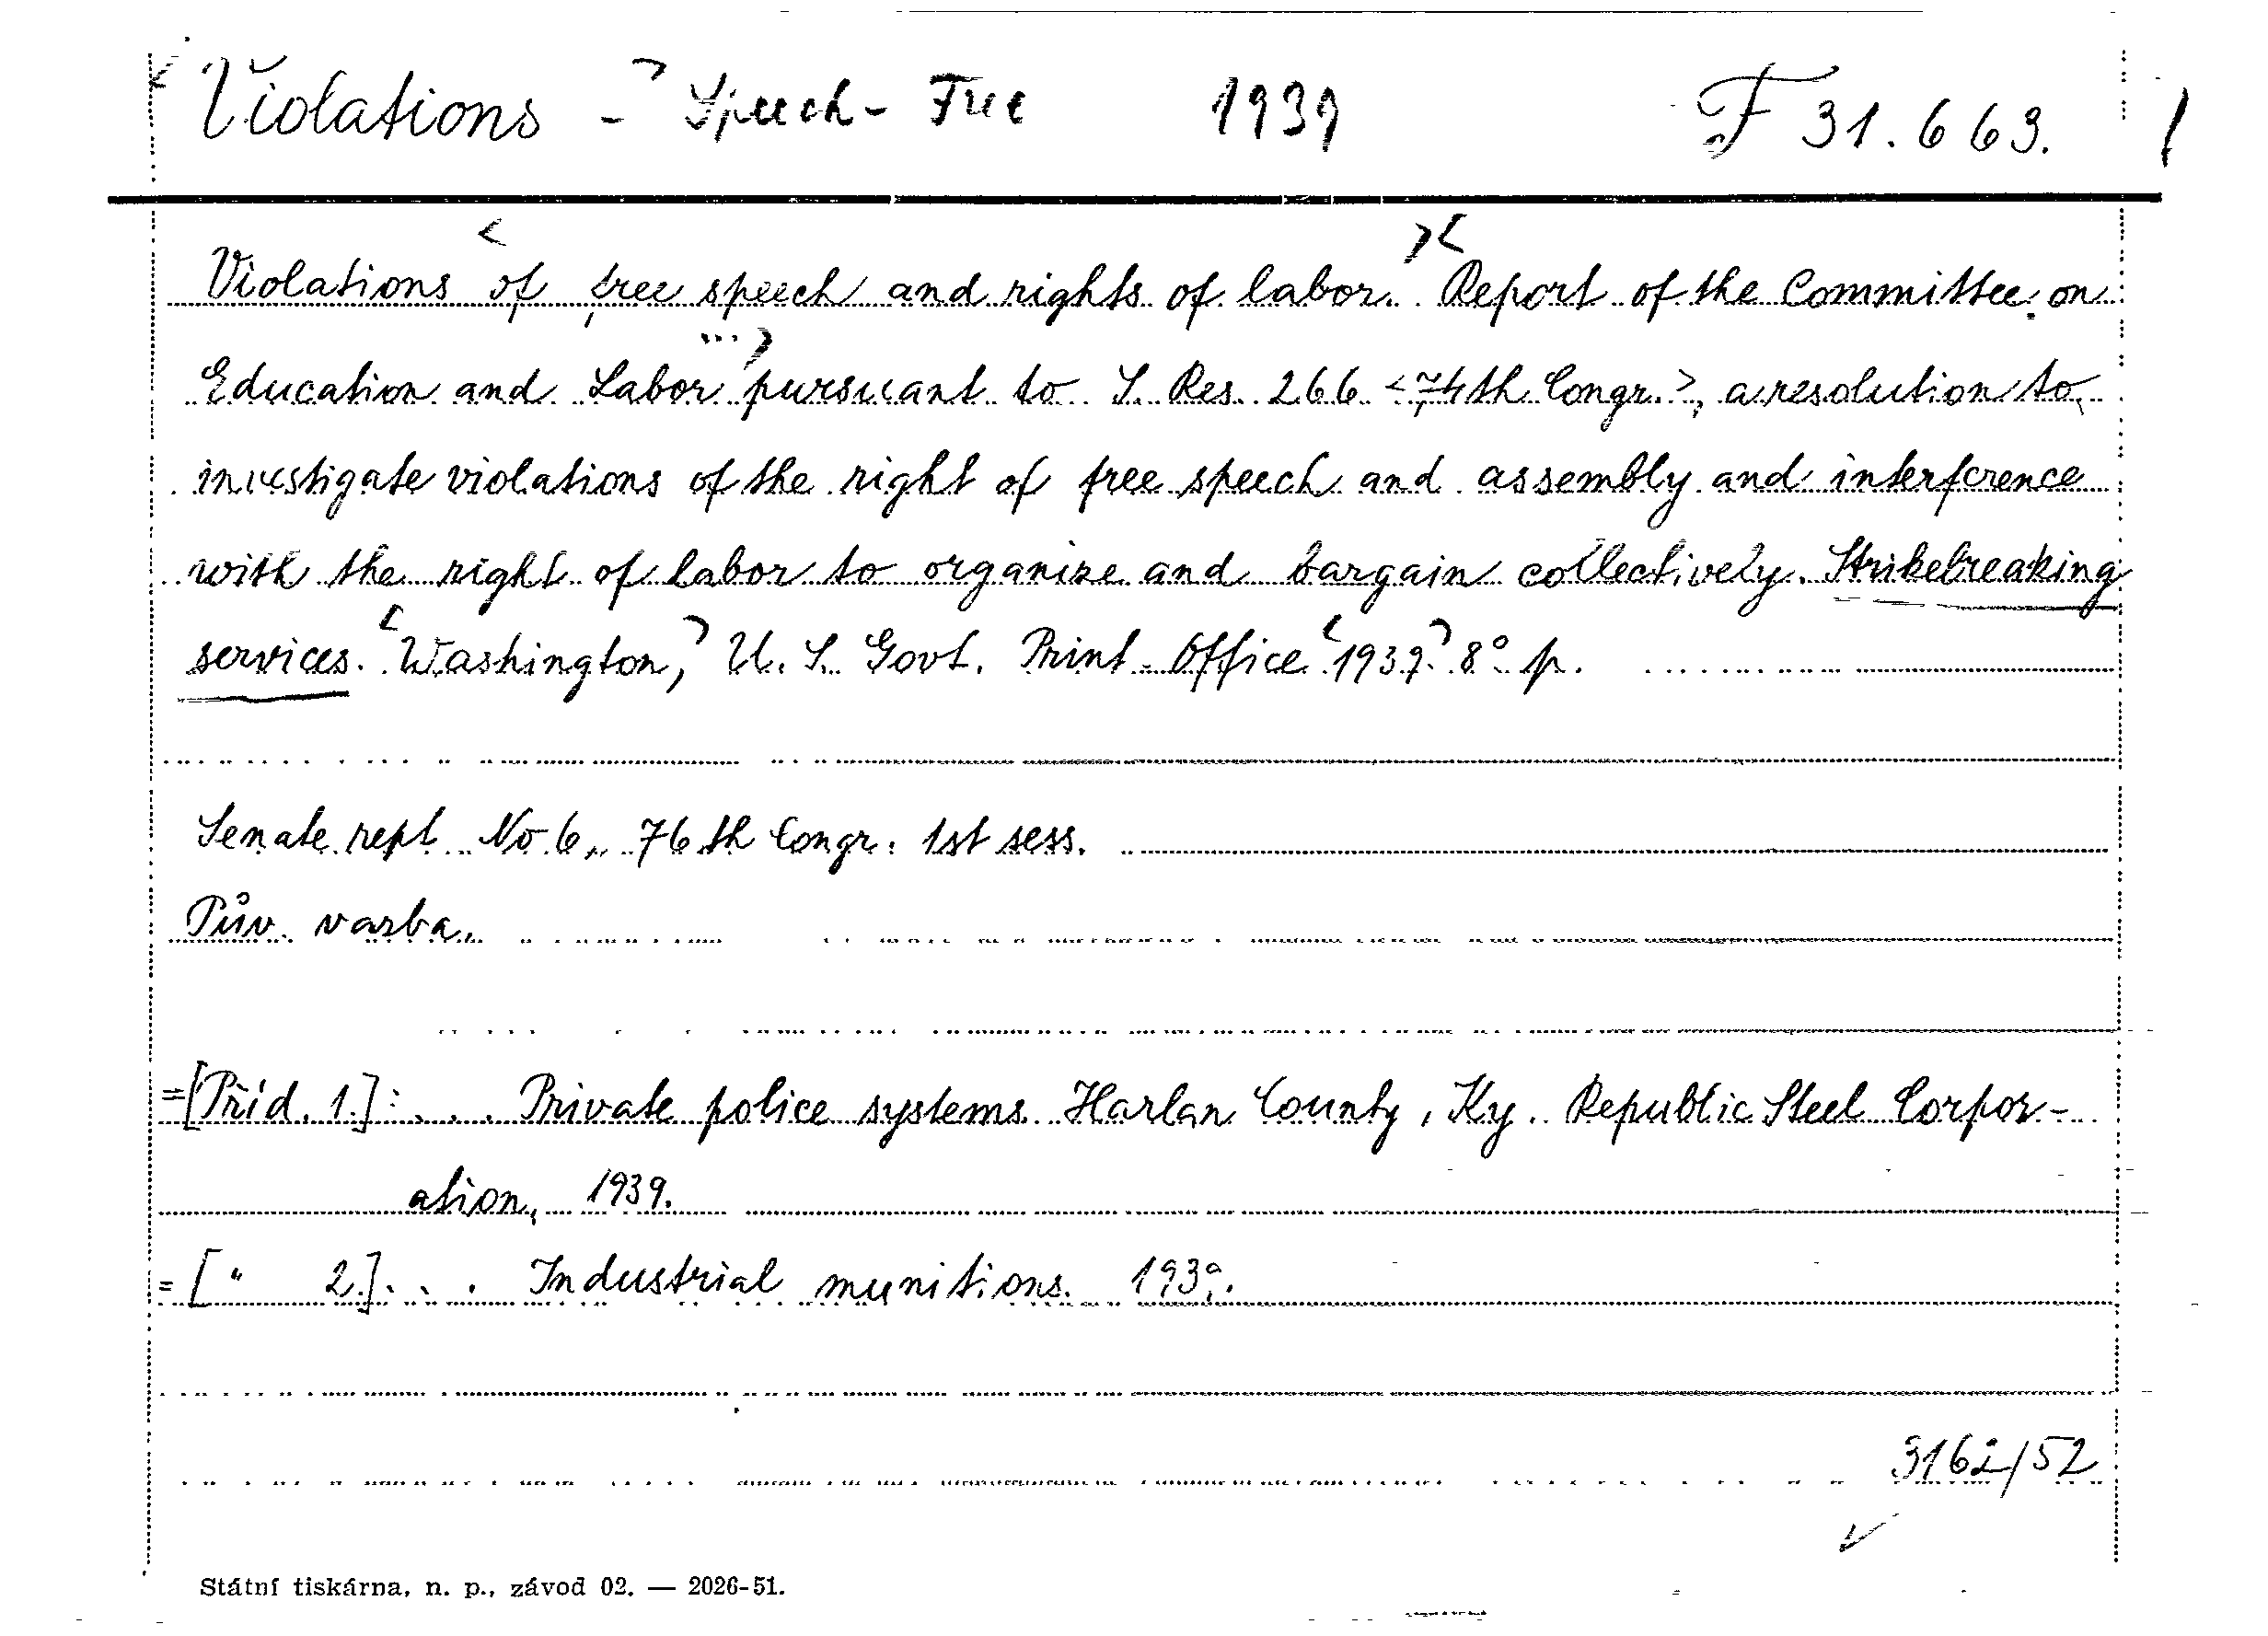 Violations - Speech - Free 1939 F 31.663.
Violations of free speech and rights of labor. Report of the Committee on
Education and Labor pursuant to S. Res. 266 <74th Congr.>, a resolution to
investigate violations of the right of free speech and assembly and interference
with the right of labor to organize and bargain collectively. Strikebreaking
services. Washington, U. S. Govt. Print. Office 1939. 8° p.
Senate rept. No 6, 76th Congr. 1st sess.
Pův. vazba.
=[Příd. 1.]: ... Private police systems. Harlan County, Ky. Republic Steel Corpor-
ation, 1939.
= [" 2.]... Industrial munitions. 1939.
3162/52
Státní tiskárna, n. p., závod 02. — 2026-51.